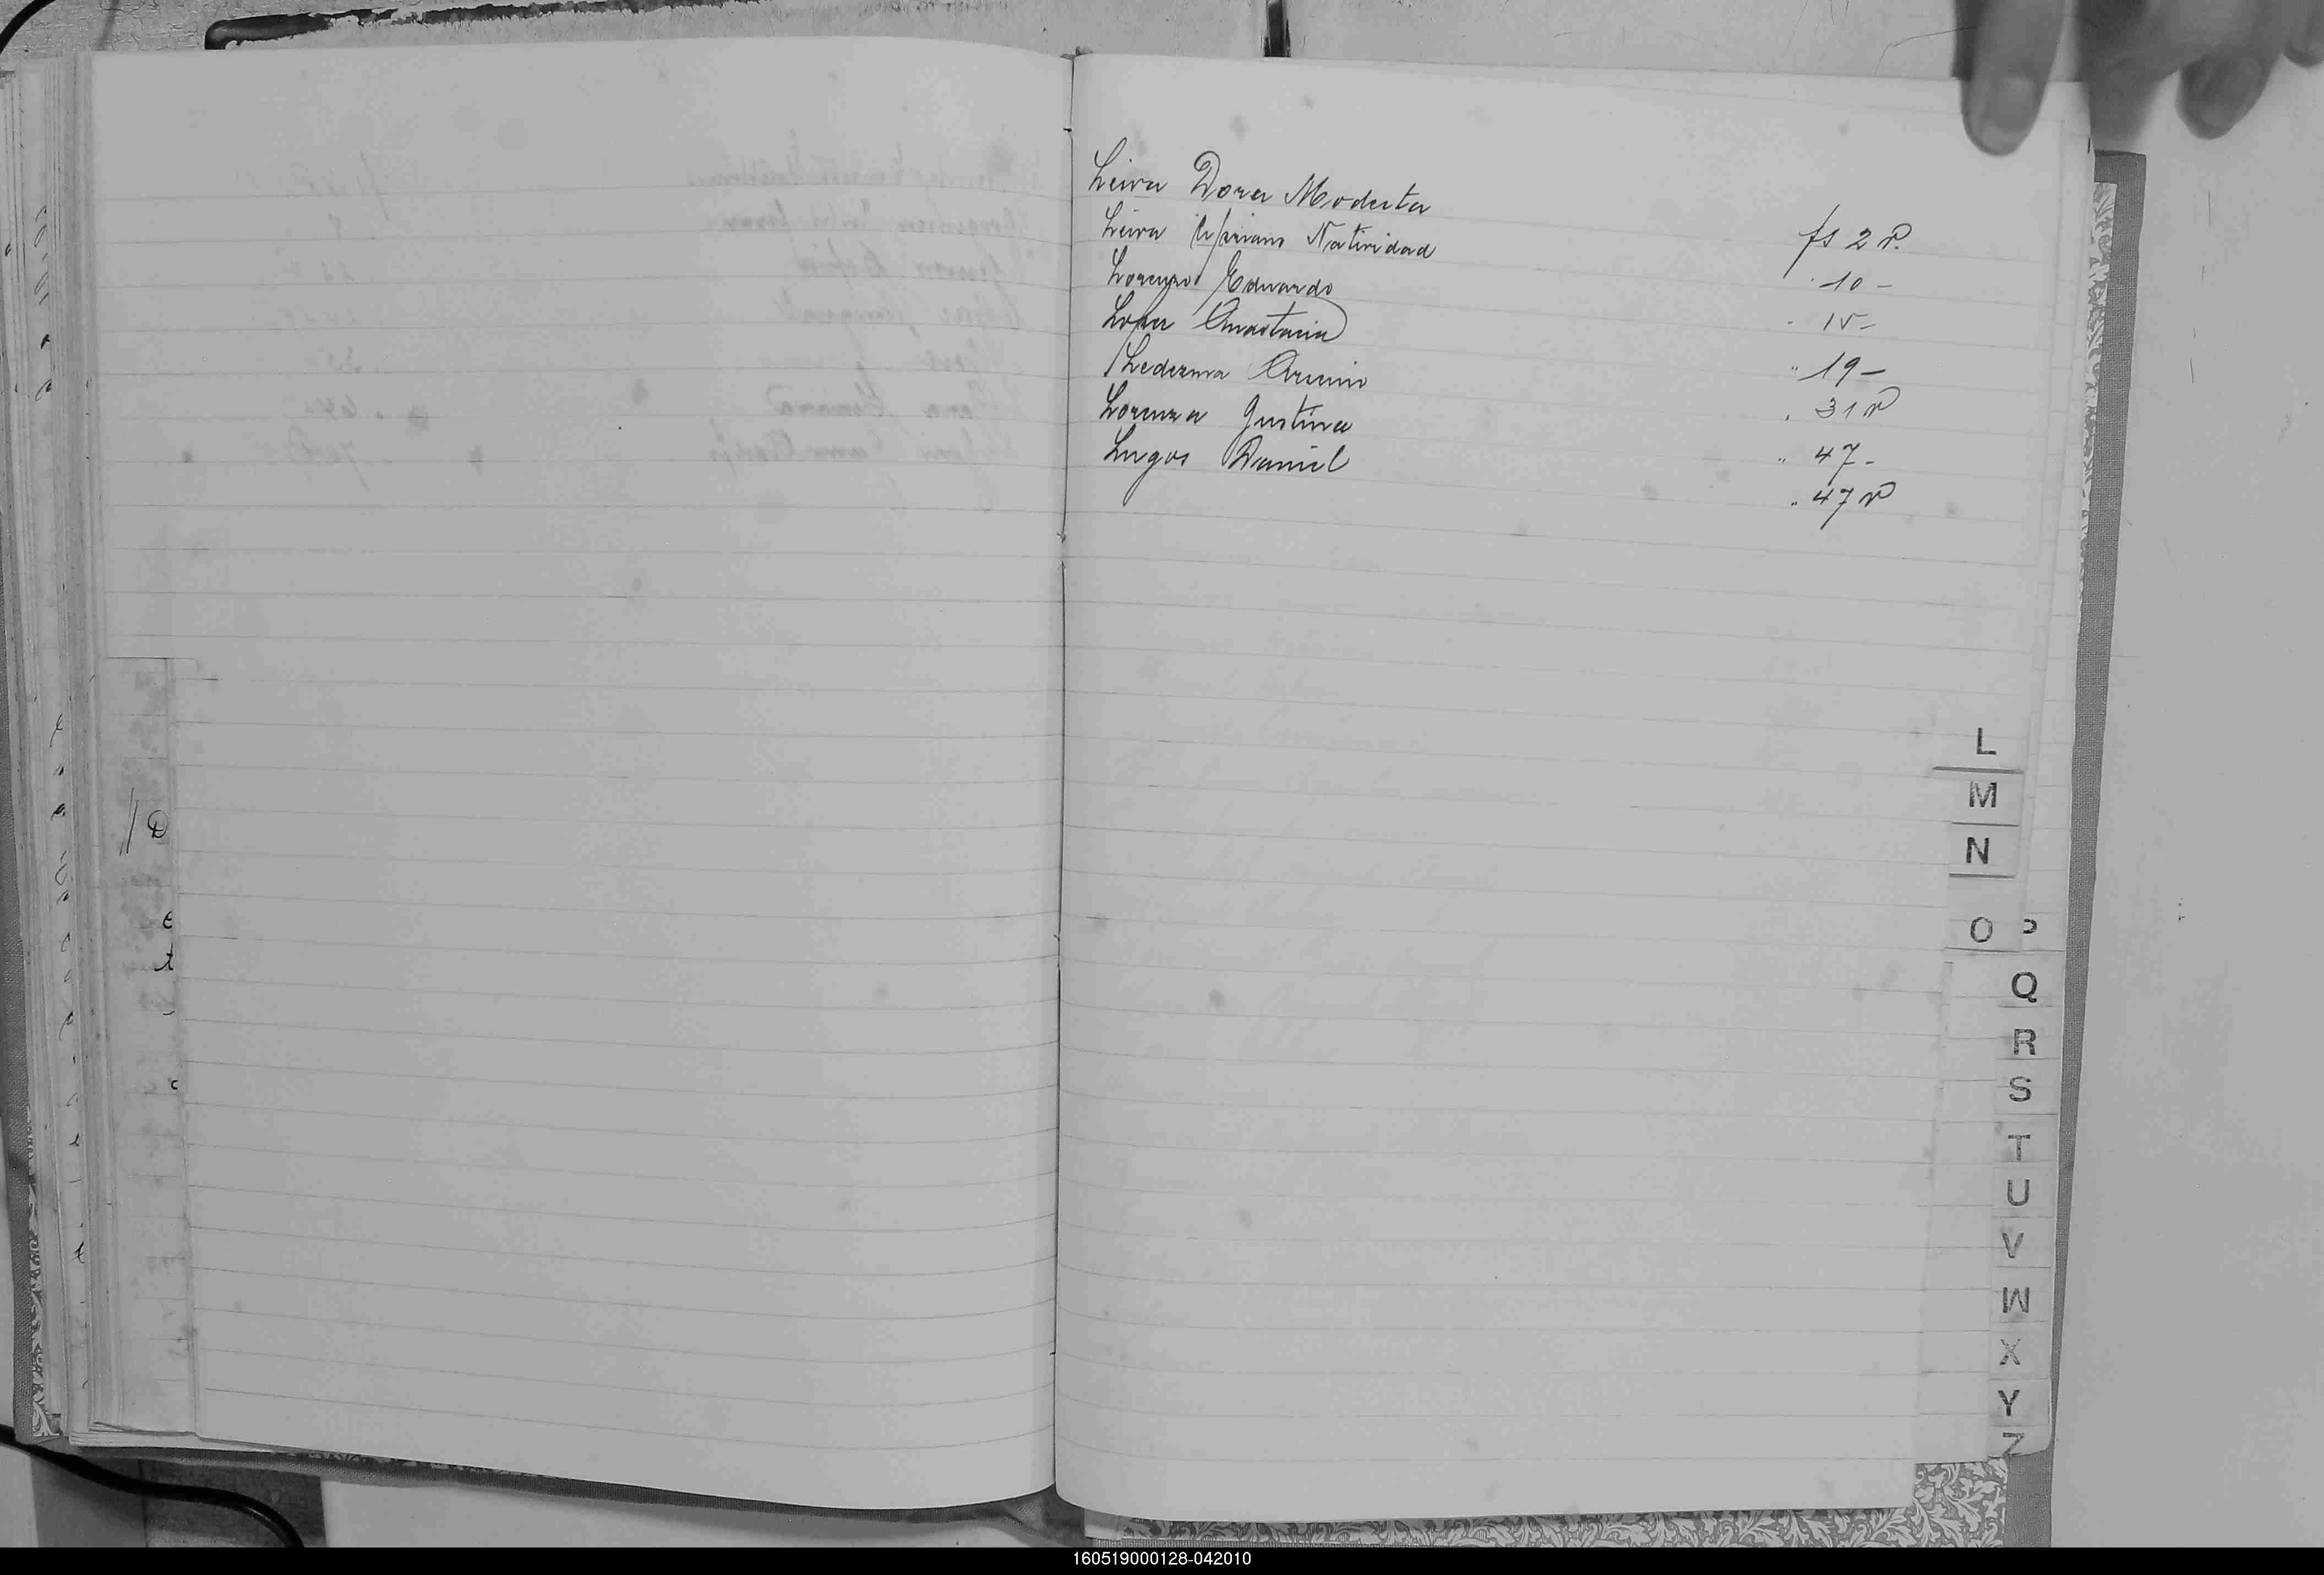 Leiva Dora Modesta fs 2 v.
Leiva Cipriano Natividad " 10 -
Lorenzo Eduardo " 15 -
Lopez Anastacia " 19 -
Ledezma Arsenio " 31 v
Lorenza Justina " 47 -
Lugos Daniel " 47 v
L
M
N
O
Q
R
S
T
U
V
W
X
Y
Z
160519000128-042010